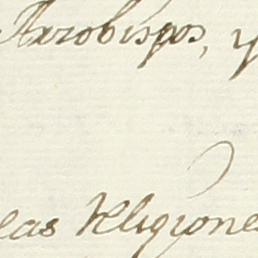 Arzobispos, y
eas Religione